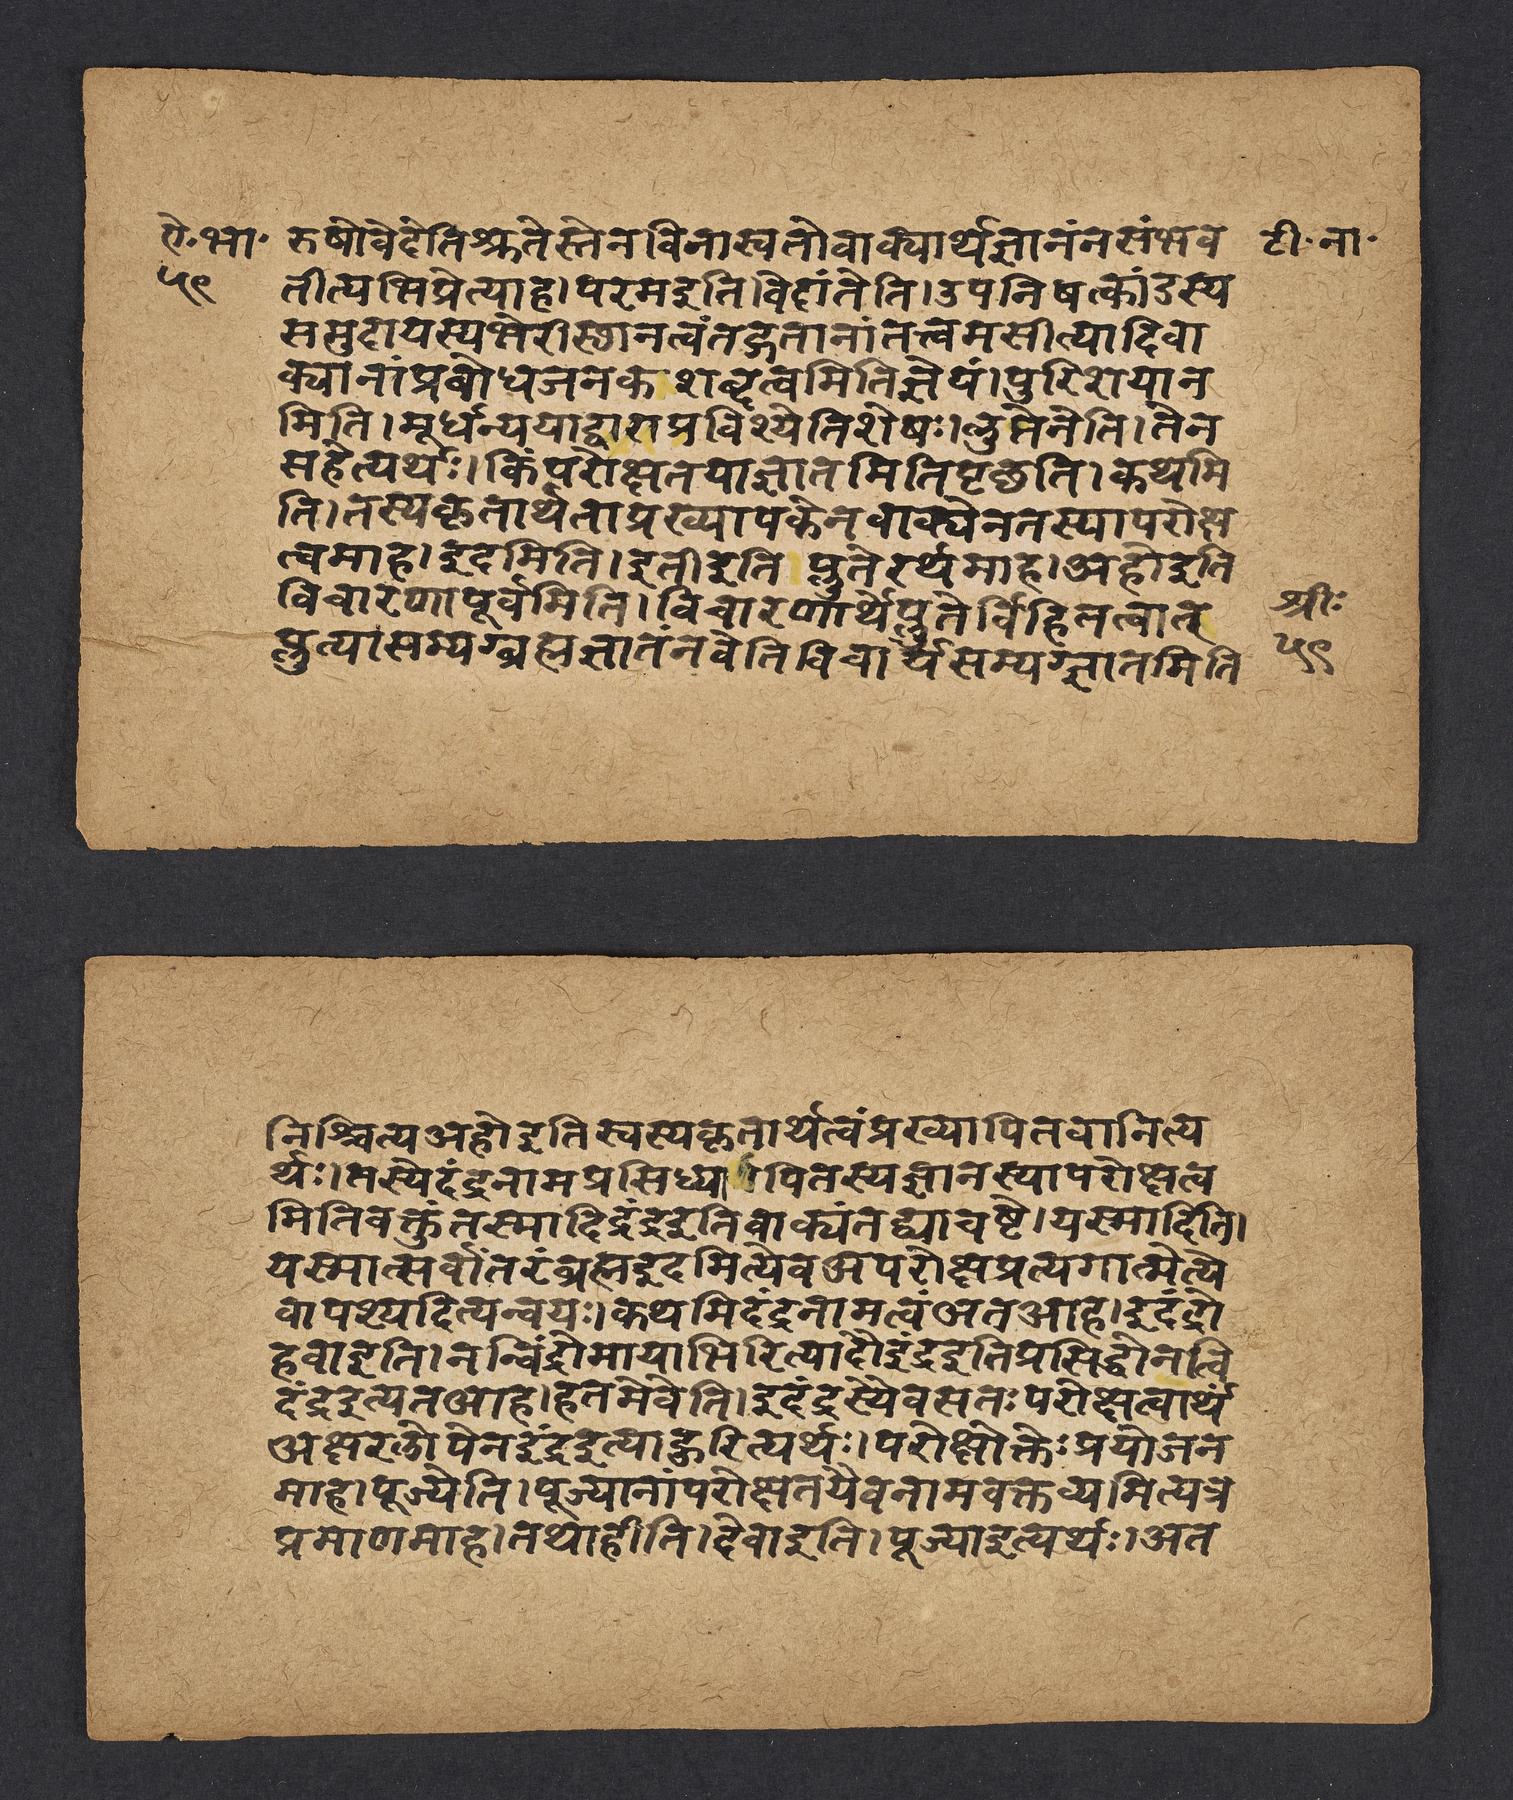 ऐ·भा· रुषोवेदेतिश्रुतेस्तेनविनास्वतोवाक्यार्थज्ञानंनसंभव टी·ना·
५९ तीत्यभिप्रेत्याह।परमइति।वेदांतेति।उपनिषत्कांडस्य
समुदायस्यभेरीस्थानत्वंतद्गतानांतत्त्वमसीत्यादिवा
क्यानांप्रबोधजनकशब्दत्वमितिज्ञेयं।पुरिशयान
मिति।मूर्धन्ययाद्वाराप्रविश्येतिशेषः।लुप्तेनेति।तेन
सहेत्यर्थः।किंपरोक्षतयाज्ञातमितिपृच्छति।कथमि
ति।तस्यकृतार्थताप्रख्यापकेनवाक्येनतस्यापरोक्ष
त्वमाह।इदमिति।इतीइति।प्लुतेरर्थमाह।अहोइति
विचारणापूर्वमिति।विचारणार्थेप्लुतेर्विहितत्वात् श्रीः
प्लुत्यासम्यग्ब्रह्मज्ञातंनवेतिविचार्यसम्यग्ज्ञातमिति ५९
निश्चित्यअहोइतिस्वस्यकृतार्थत्वंप्रख्यापितवानित्य
र्थः।तस्येदंद्रनामप्रसिध्यापितस्यज्ञानस्यापरोक्षत्व
मितिवक्तुंतस्मादिदंद्रइतिवाक्यंतद्व्याचष्टे।यस्मादिति।
यस्मात्सर्वांतरंब्रह्मइदमित्येवअपरोक्षप्रत्यगात्मेत्ये
वापश्यदित्यन्वयः।कथमिदंद्रनामत्वंअतआह।इदंद्रो
हवाइति।नन्विंद्रोमायाभिरित्यादौइंद्रइतिप्रसिद्धोनत्वि
दंद्रइत्यतआह।हतमेवेति।इदंद्रस्यैवसतःपरोक्षत्वार्थं
अक्षरलोपेनइंद्रइत्याहुरित्यर्थः।परोक्षोक्तेःप्रयोजन
माह।पूज्येति।पूज्यानांपरोक्षतयैवनामवक्तव्यमित्यत्र
प्रमाणमाह।तथाहीति।देवाइति।पूज्याइत्यर्थः।अत